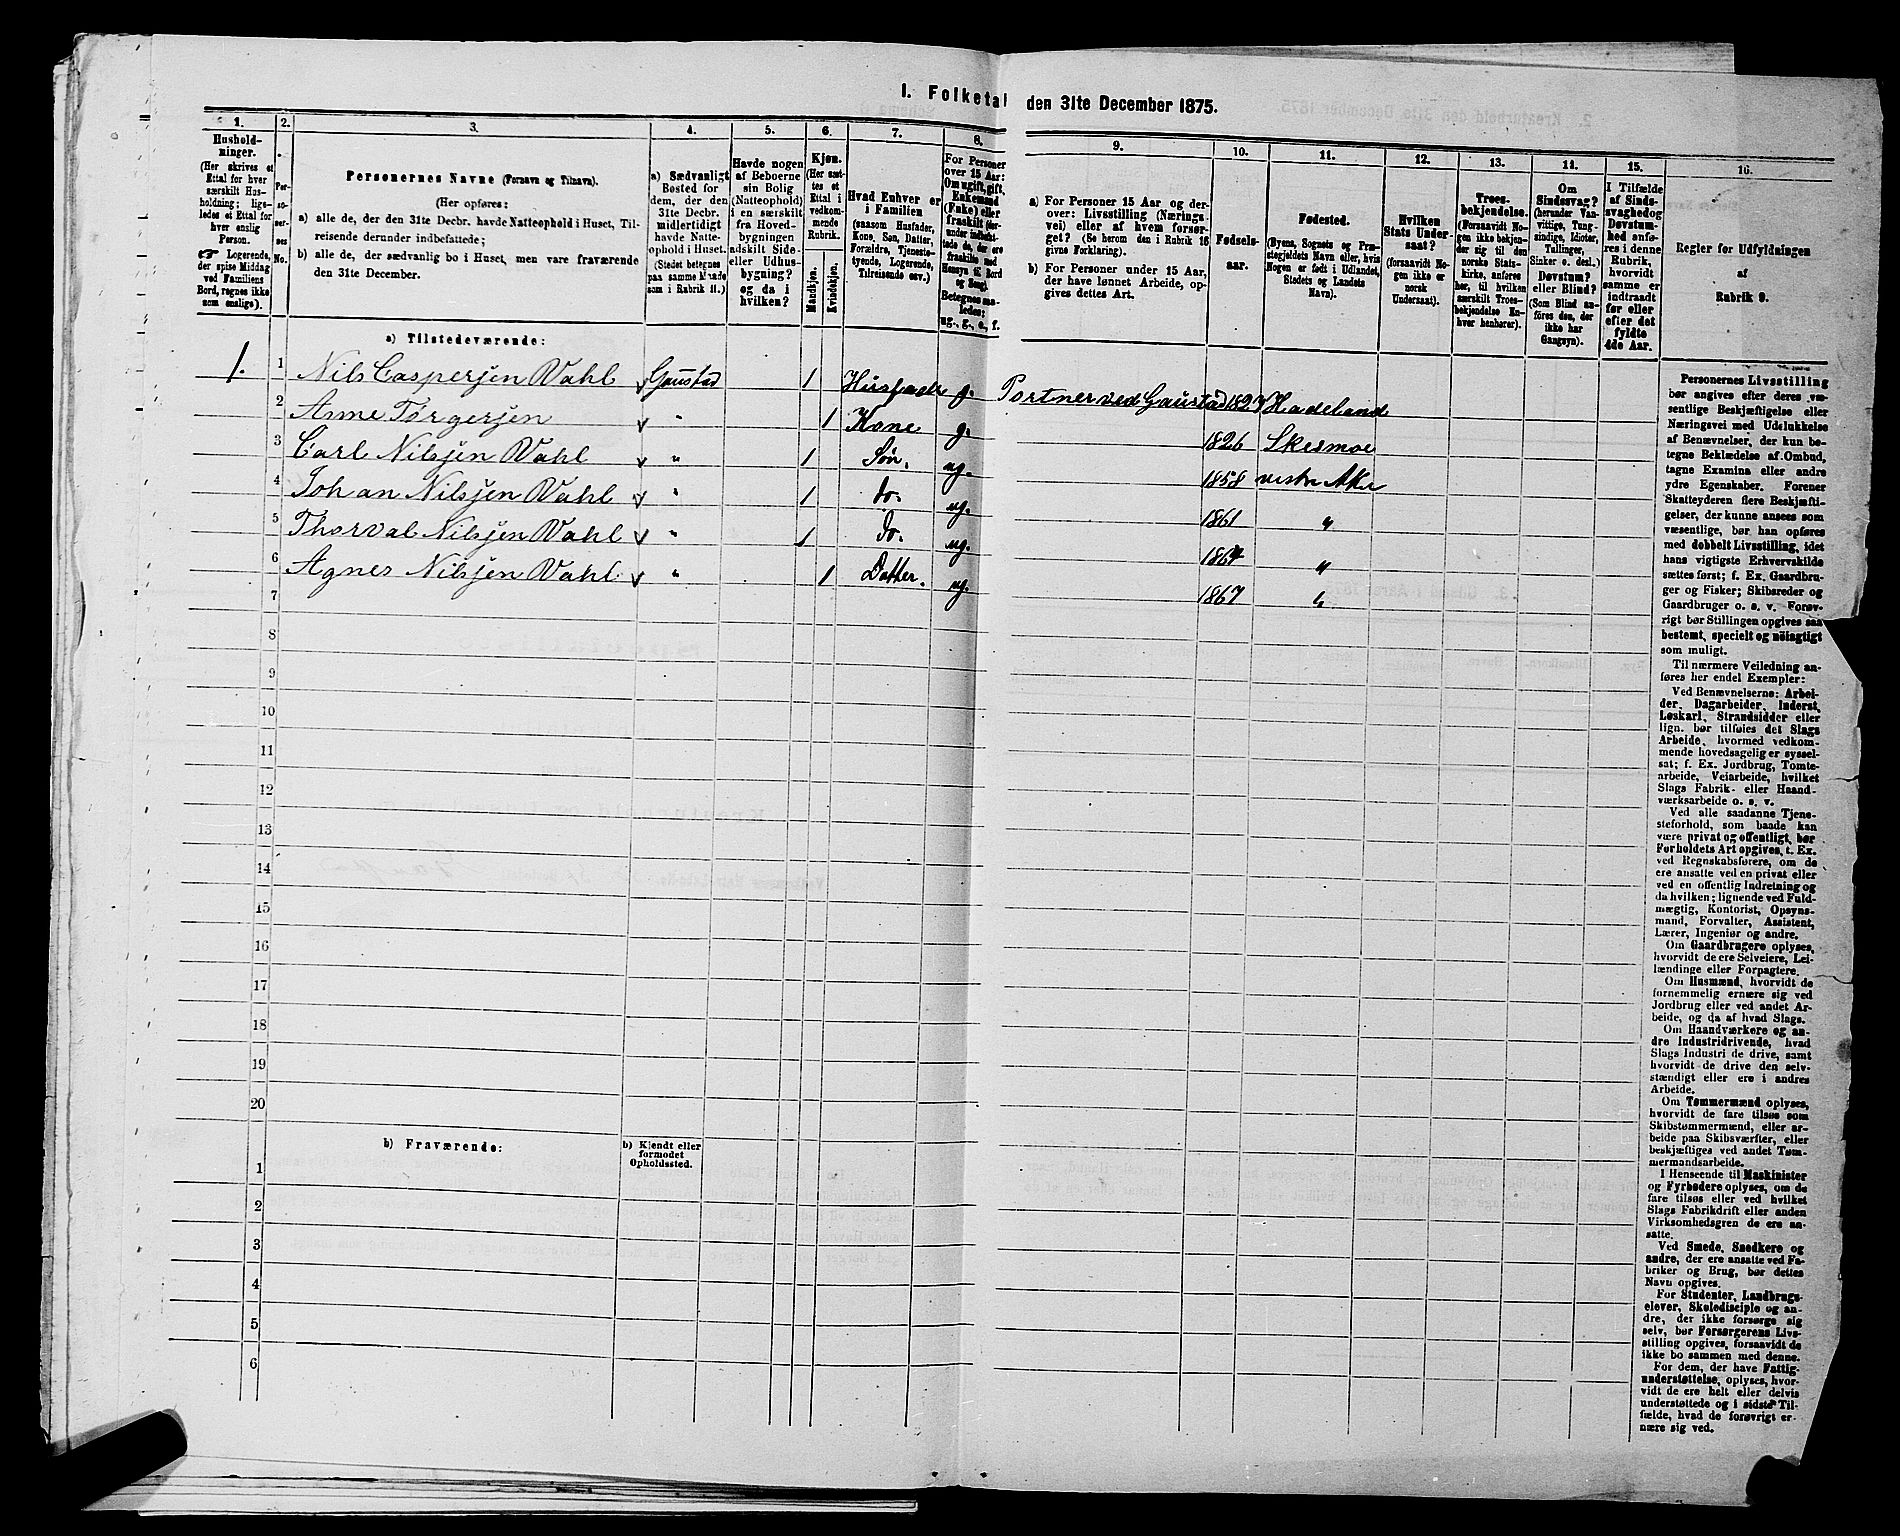 I. Folketal den 31te December 1875.
1. 2. 3. 4. 5. 6. 7. 8. 9. 10. 11. 12. 13. 14. 15. 16.
Hushold-
ninger.
(Her skrives et
Ettal for hver
særskilt Hus-
holdning; lige-
ledes et Ettal for
hver enslig
Person.
☞ Logerende,
der spise Middag
ved Familiens
Bord, regnes ikke
som enslige).
Per-
so-
ner-
nes
No.
Personernes Navne (Fornavn og Tilnavn).
(Her opføres:
a) alle de, der den 31te Decbr. havde Natteophold i Huset, Til-
reisende derunder indbefattede;
b) alle de, der sædvanlig bo i Huset, men vare fraværende
den 31te December.
a) Sædvanligt
Bosted for
dem, der den
31te Decbr.
midlertidigt
havde Natte-
ophold i Huset.
(Stedet betegnes
paa samme Maade
som i Rubrik 11.)
Havde nogen
af Beboerne
sin Bolig
(Natteophold)
i en særskilt
fra Hoved-
bygningen
adskilt Side-
eller Udhus-
bygning?
og da i
hvilken?
Kjøn.
(Her sæt-
tes et
Ettal i
vedkom-
mende
Rubrik.
Mandkjøn.
Kvindekjøn.
Hvad Enhver er
i Familien
(saasom Husfader,
Kone, Søn, Datter,
Forældre, Tjeneste-
tyende, Logerende,
Tilreisende osv.)
For Personer
over 15 Aar:
Om ugift, gift,
Enkemand
(Enke) eller
fraskilt
Betegnes saa-
ledes:
ug., g., e., f.
a) For Personer 15 Aar og der-
over: Livsstilling (Nærings-
vei) eller af hvem forsør-
get? (Se herom den i Rubrik 16
givne Forklaring).
b) For Personer under 15 Aar,
der have lønnet Arbeide, op-
gives dettes Art.
Fødsels-
aar.
Fødested.
(Byens, Sognets og Præ-
stegjeldets Navn eller, hvis
Nogen er født i Udlandet,
Stedets og Landets
Navn).
Hvilken
Stats Under-
saat?
(forsaavidt No-
gen ikke er
norsk
Undersaat).
Troes-
bekjendelse.
(Forsaavidt No-
gen ikke bekjen-
der sig til den
norske Stats-
kirke, anføres
her, til hvilken
særskilt Troes-
bekjendelse En-
hver henhører).
Om
Sindssvag?
(herunder Van-
vittige, Tung-
sindige, Idioter,
Tullinger,
Sinker o. desl.)
Døvstum?
eller Blind?
(Som Blind an-
føres den, der
ikke har
Gangsyn).
I Tilfælde
af Sinds-
svaghed og
Døvstum-
hed anfø-
res i denne
Rubrik,
hvorvidt
samme er
indtraadt
før eller
efter det
fyldte
4de Aar.
Regler for Udfyldningen
af
Rubrik 9.
a) Tilstedeværende:
1. 1 Nils Caspersen Vahl v Gaustad 1 Husfader g. Portner ved Gaustad 1827 Hadeland
2 Anne Torgersen v " 1 Kone g. 1826 Skesmoe
3 Carl Nilsjen Vahl v " 1 Søn. ug. 1858 vestre Aker
4 Johan Nilsjen Vahl v " 1 do. ug. 1861 "
5 Thorval Nilsjen Vahl v " 1 do. ug. 1864 "
6 Agnes Nilsjen Vahl v " 1 Datter. ug. 1867 "
7
8
9
10
11
12
13
14
15
16
17
18
19
20
b) Fraværende:
b) Kjendt eller
formodet
Opholdssted.
1
2
3
4
5
6
Personernes Livsstilling
bør angives efter deres væ-
sentlige Beskjæftigelse eller
Næringsvei med Udelukkelse
af Benævnelser, der kun be-
tegne Beklædelse af Ombud,
tagne Examina eller andre
ydre Egenskaber. Forener
Skatteyderen flere Beskjæfti-
gelser, der kunne ansees som
væsentlige, bør han opføres
med dobbelt Livsstilling, idet
hans vigtigste Erhvervskilde
sættes først; f. Ex. Gaardbru-
ger og Fisker; Skibsreder og
Gaardbruger o. s. v. Forøv-
rigt bør Stillingen opgives saa
bestemt, specielt og nøiagtigt
som muligt.
Til nærmere Veiledning an-
føres her endel Exempler:
Ved Benævnelserne: Arbei-
der, Dagarbeider, Inderst,
Løskarl, Strandsidder eller
lign. bør tilføies det Slags
Arbeide, hvormed vedkom-
mende hovedsagelig er syssel-
sat; f. Ex. Jordbrug, Tomte-
arbeide, Veiarbeide, hvilket
Slags Fabrik- eller Haand-
værksarbeide o. s. v.
Ved alle saadanne Tjene-
steforhold, som baade kan
være privat og offentligt, bør
Forholdets Art opgives, t. Ex.
ved Regnskabsførere, om de
ere ansatte ved en privat eller
ved en offentlig Indretning og
da hvilken; lignende ved Fuld-
mægtig, Kontorist, Opsyns-
mand, Forvalter, Assistent,
Lærer, Ingeniør og andre.
Om Gaardbrugere oplyses,
hvorvidt de ere Selveiere, Lei-
lændinge eller Forpagtere.
Om Husmænd, hvorvidt de
fornemmelig ernære sig ved
Jordbrug eller ved andet Ar-
beide, og da af hvad Slags.
Om Haandværkere og an-
dre Industridrivende, hvad
Slags Industri de drive, samt
hvorvidt de drive den selv-
stændigt eller ere i andres
Arbeide.
Om Tømmermænd oplyses,
hvorvidt de fare tilsøs som
Skibstømmermænd, eller ar-
beide paa Skibsværfter, eller
beskjæftiges ved andet Tøm-
mermandsarbeide.
I Henseende til Maskinister
og Fyrbødere oplyses, om de
fare tilsøs eller ved hvilket
Slags Fabrikdrift eller anden
Virksomhedsgren de ere an-
satte.
Ved Smede, Snedkere og
andre, der ere ansatte ved Fa-
briker og Brug, bør dettes
Navn opgives.
For Studenter, Landbrugs-
elever, Skoledisciple og an-
dre, der ikke forsørge sig
selv, bør Forsørgerens Livs-
stilling opgives, forsaavidt de
ikke bo sammen med denne.
For dem, der have Fattig-
understøttelse, oplyses, hvor-
vidt de ere helt eller delvis
understøttede og i sidste Til-
fælde, hvad de forøvrigt er-
nære sig ved.